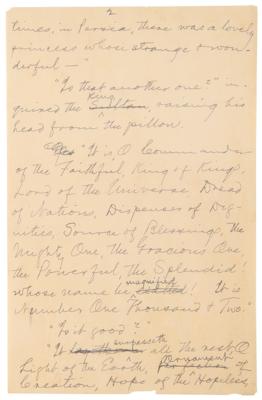 2
times, in Persia, there was a lovely
princess whose strange & won-
derful —"
"Is that another one?" in-
King
quired the Sultan, raising his
head from the pillow.
"It is O Commander
of the Faithful, King of Kings,
Lord of the Universe, Dread
of Nations, Dispenser of Dig-
nities, Source of Blessings, the
Mighty One, the Gracious One,
the Powerful, the Splendid!
magnified
whose name be! It is
Number One Thousand & Two."
"Is it good?"
surpasseth
"It all the rest, O
Ornament
Light of the Earth, Perfection of
Creation, Hope of the Hopeless,